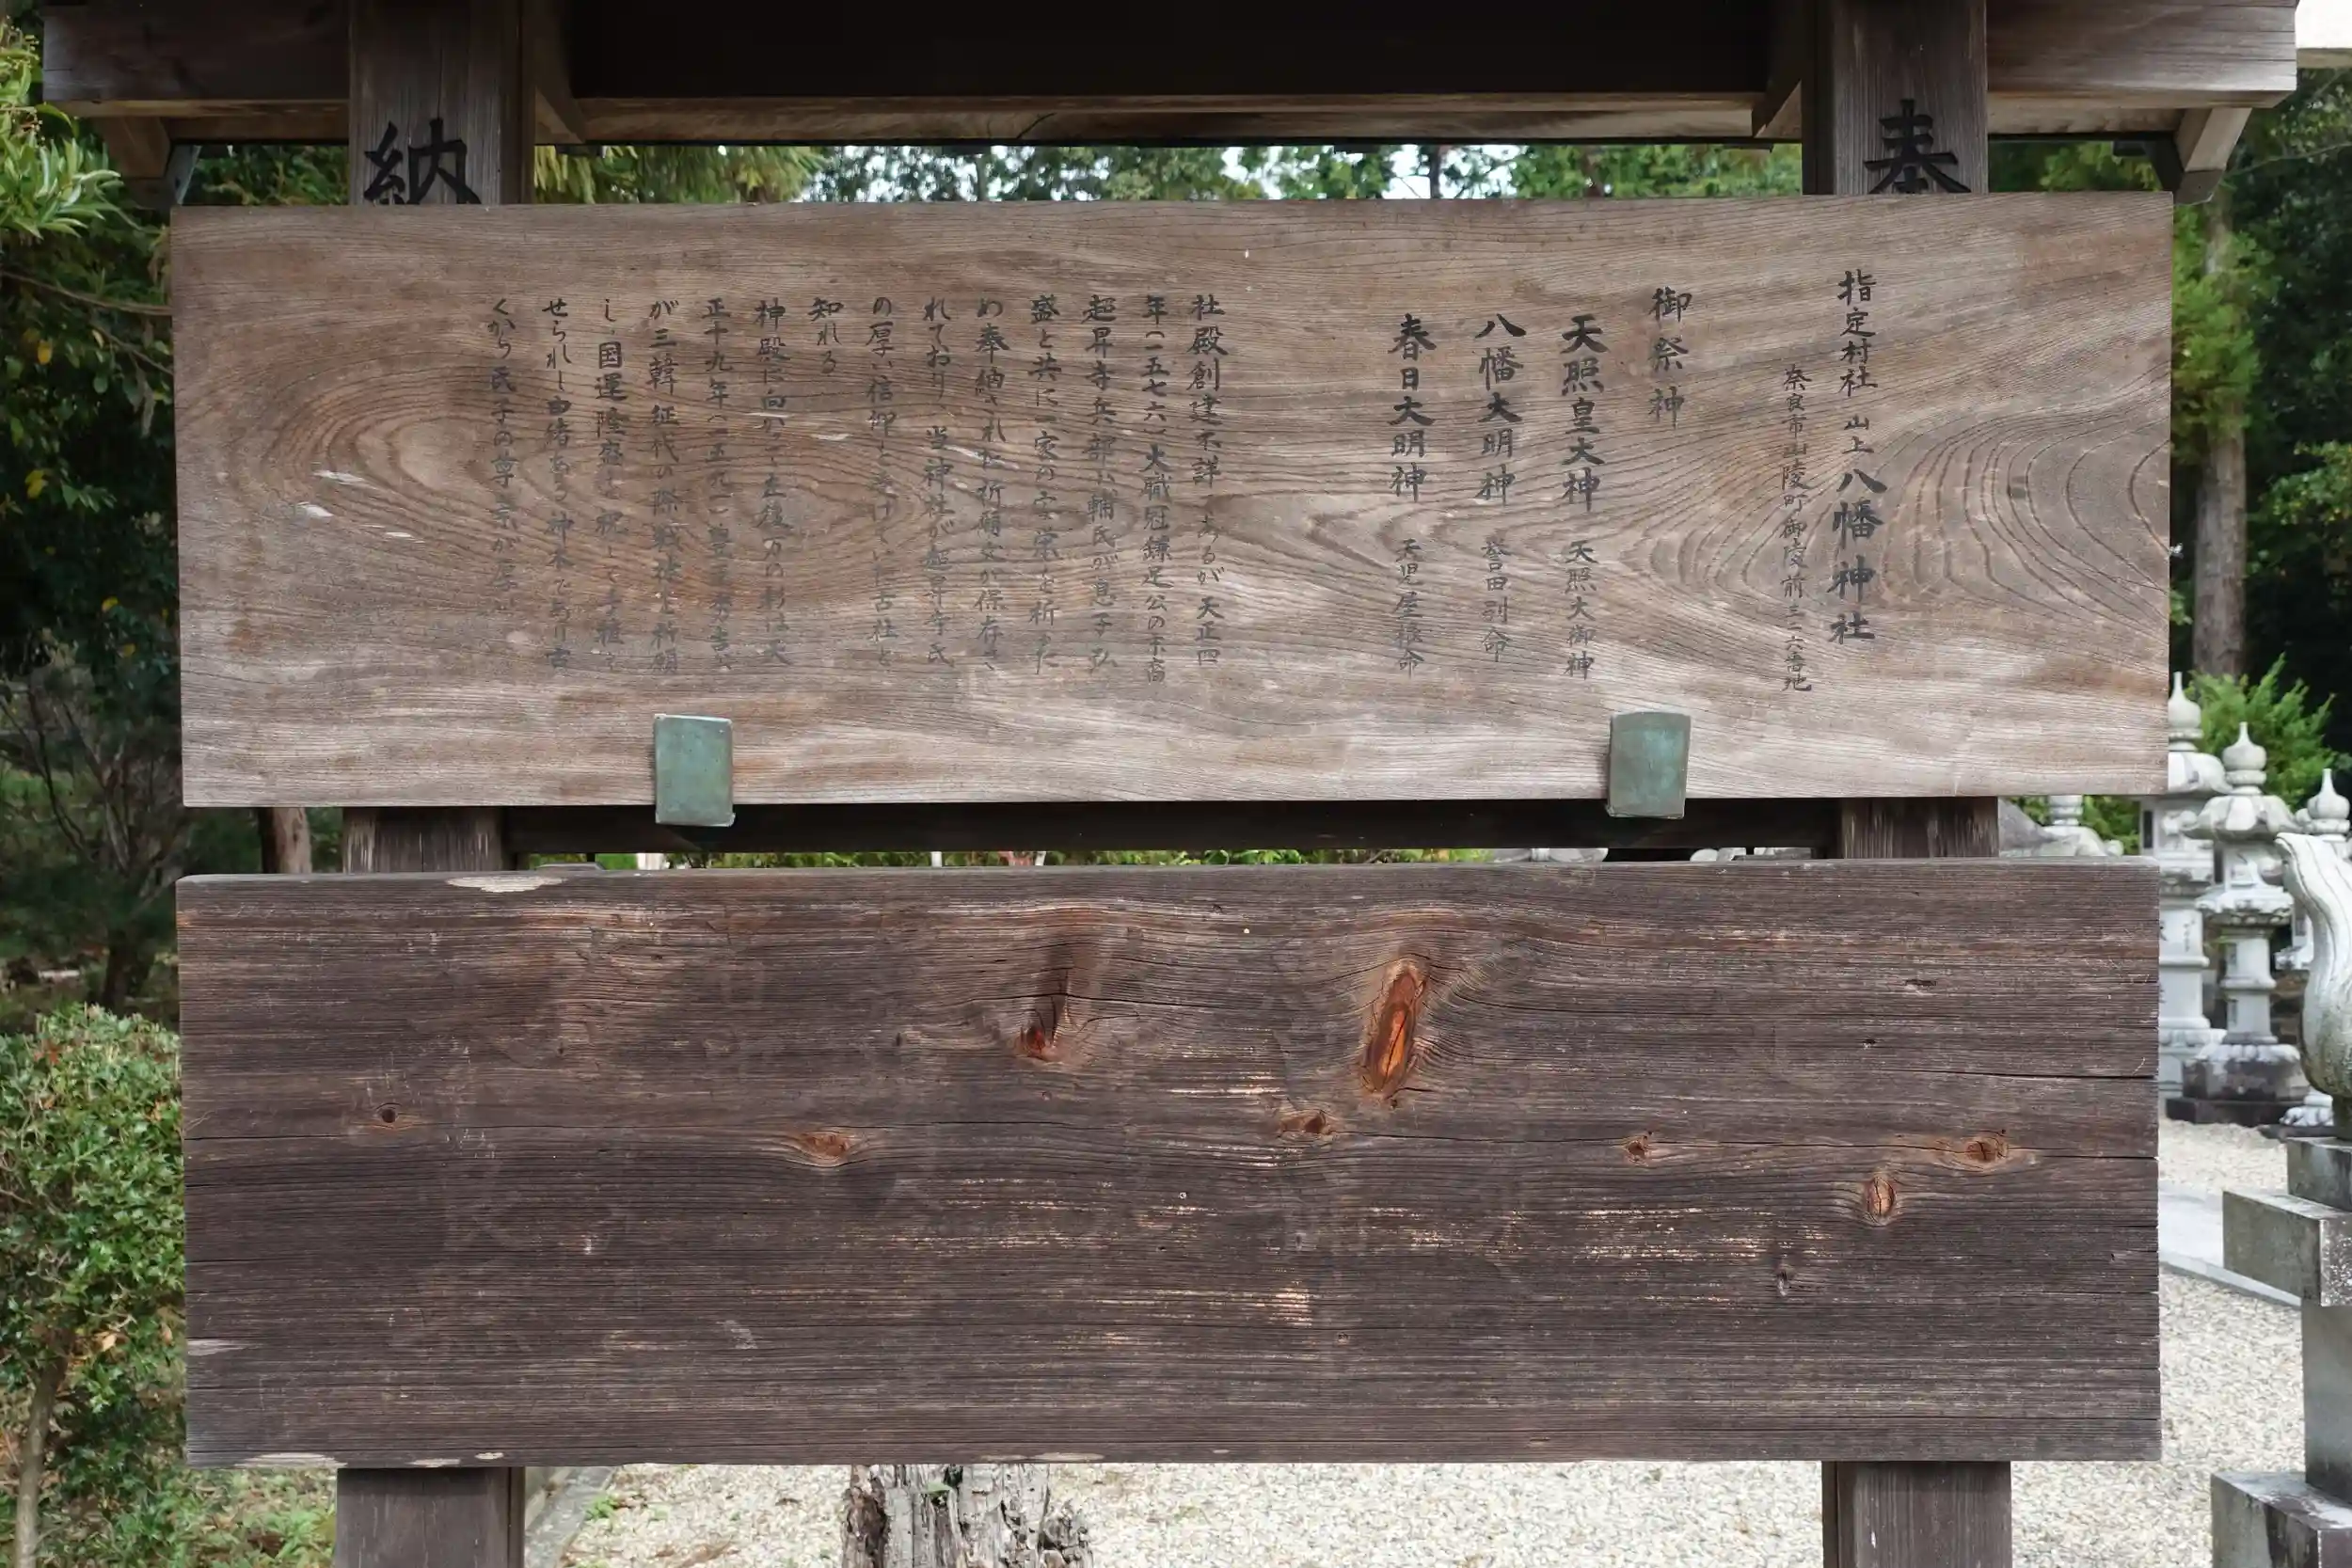 奉
納
指定村社 山上八幡神社
奈良市山陵町御陵前三二六番地
御祭神
天照皇大神 天照大御神
八幡大明神 誉田別命
春日大明神 天児屋根命
社殿創建不詳であるが天正四
年(一五七六)大職冠鎌足公の末裔
超昇寺兵部少輔氏が息子弘
盛と共に一家の安栄を祈た
め奉納された祈願文が保存さ
れており、当神社が超昇寺氏
の厚い信仰を受けてい古社と
知れる
神殿に向かって左後方の杉は天
正十九年(一五九一)豊臣秀吉公
が三韓征伐の際戦勝を祈願
し、国運隆盛を祝して手植え
せられし由緒ある神木であり古
くから氏子の尊崇が厚い